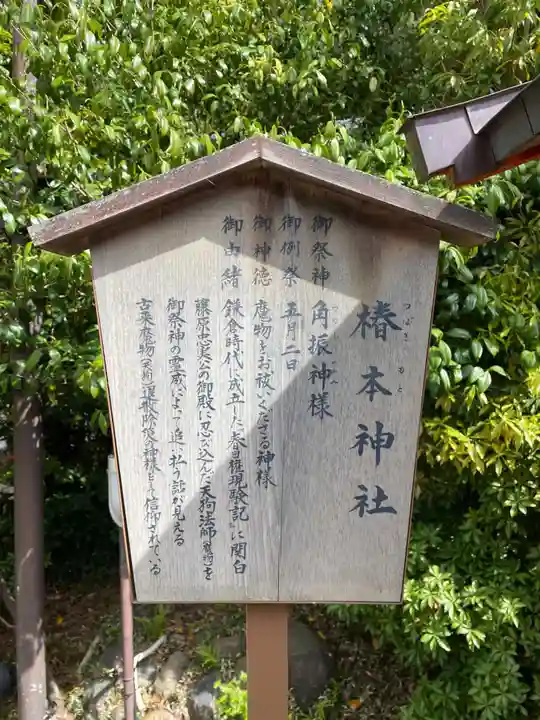 椿本神社
つばき もと
御祭神 角振神様
御例祭 五月二日
御神徳 魔物をお祓いくださる神様
御由緒 鎌倉時代に成立した『春日権現験記』に関白
藤原忠実公の御殿に忍び込んだ天狗法師(魔物)を
御祭神の霊威によって追い払う話が見える
古来魔物(天狗)退散除災の神様として信仰されている